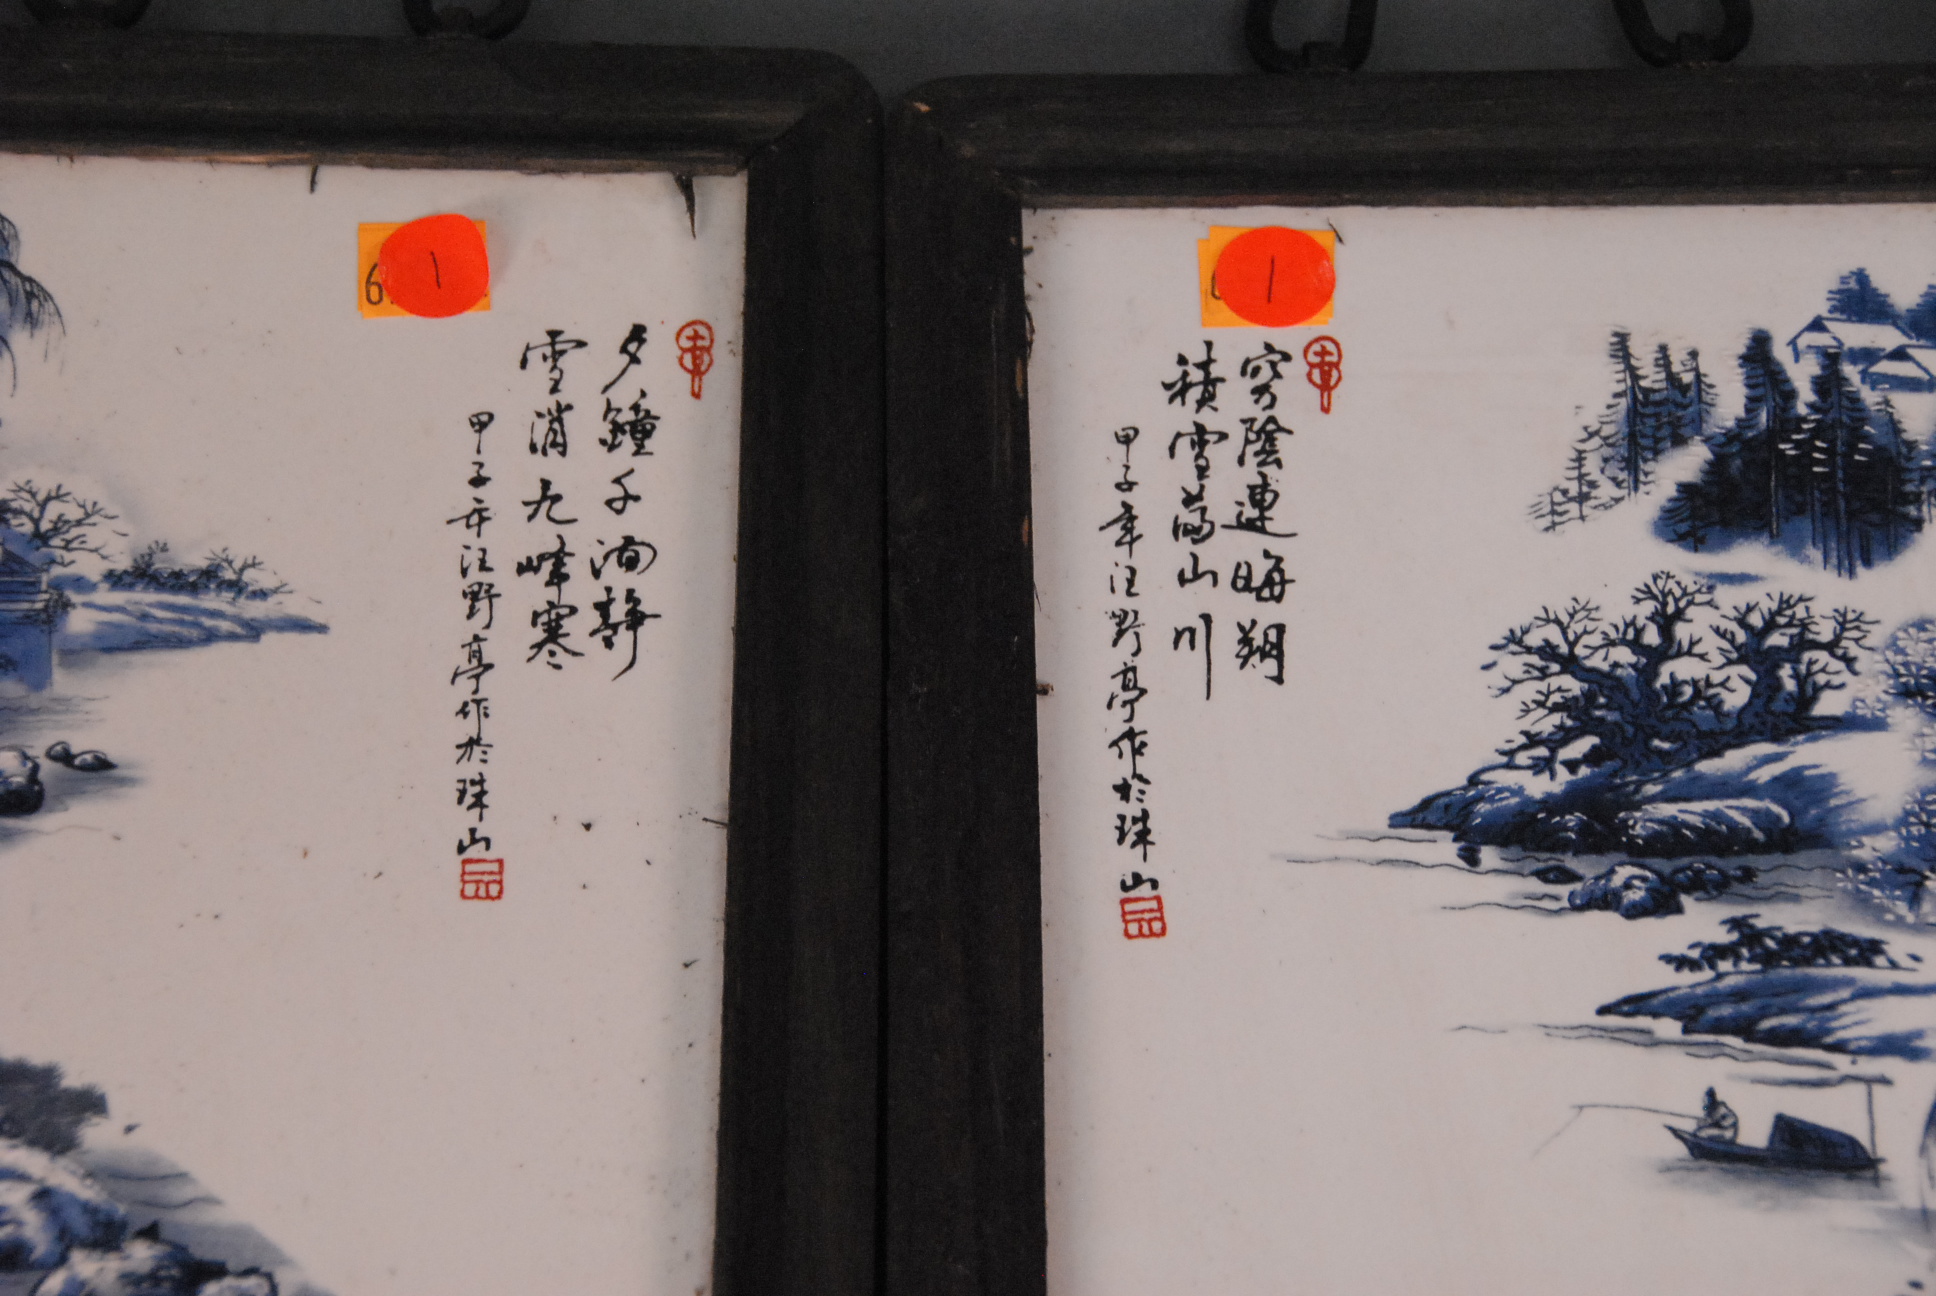 6
1
夕鐘千澗静
雪消九峰寒
甲子年汪野亭作於珠山
1
窮陰連晦朔
積雪蒲山川
甲子年汪野亭作於珠山